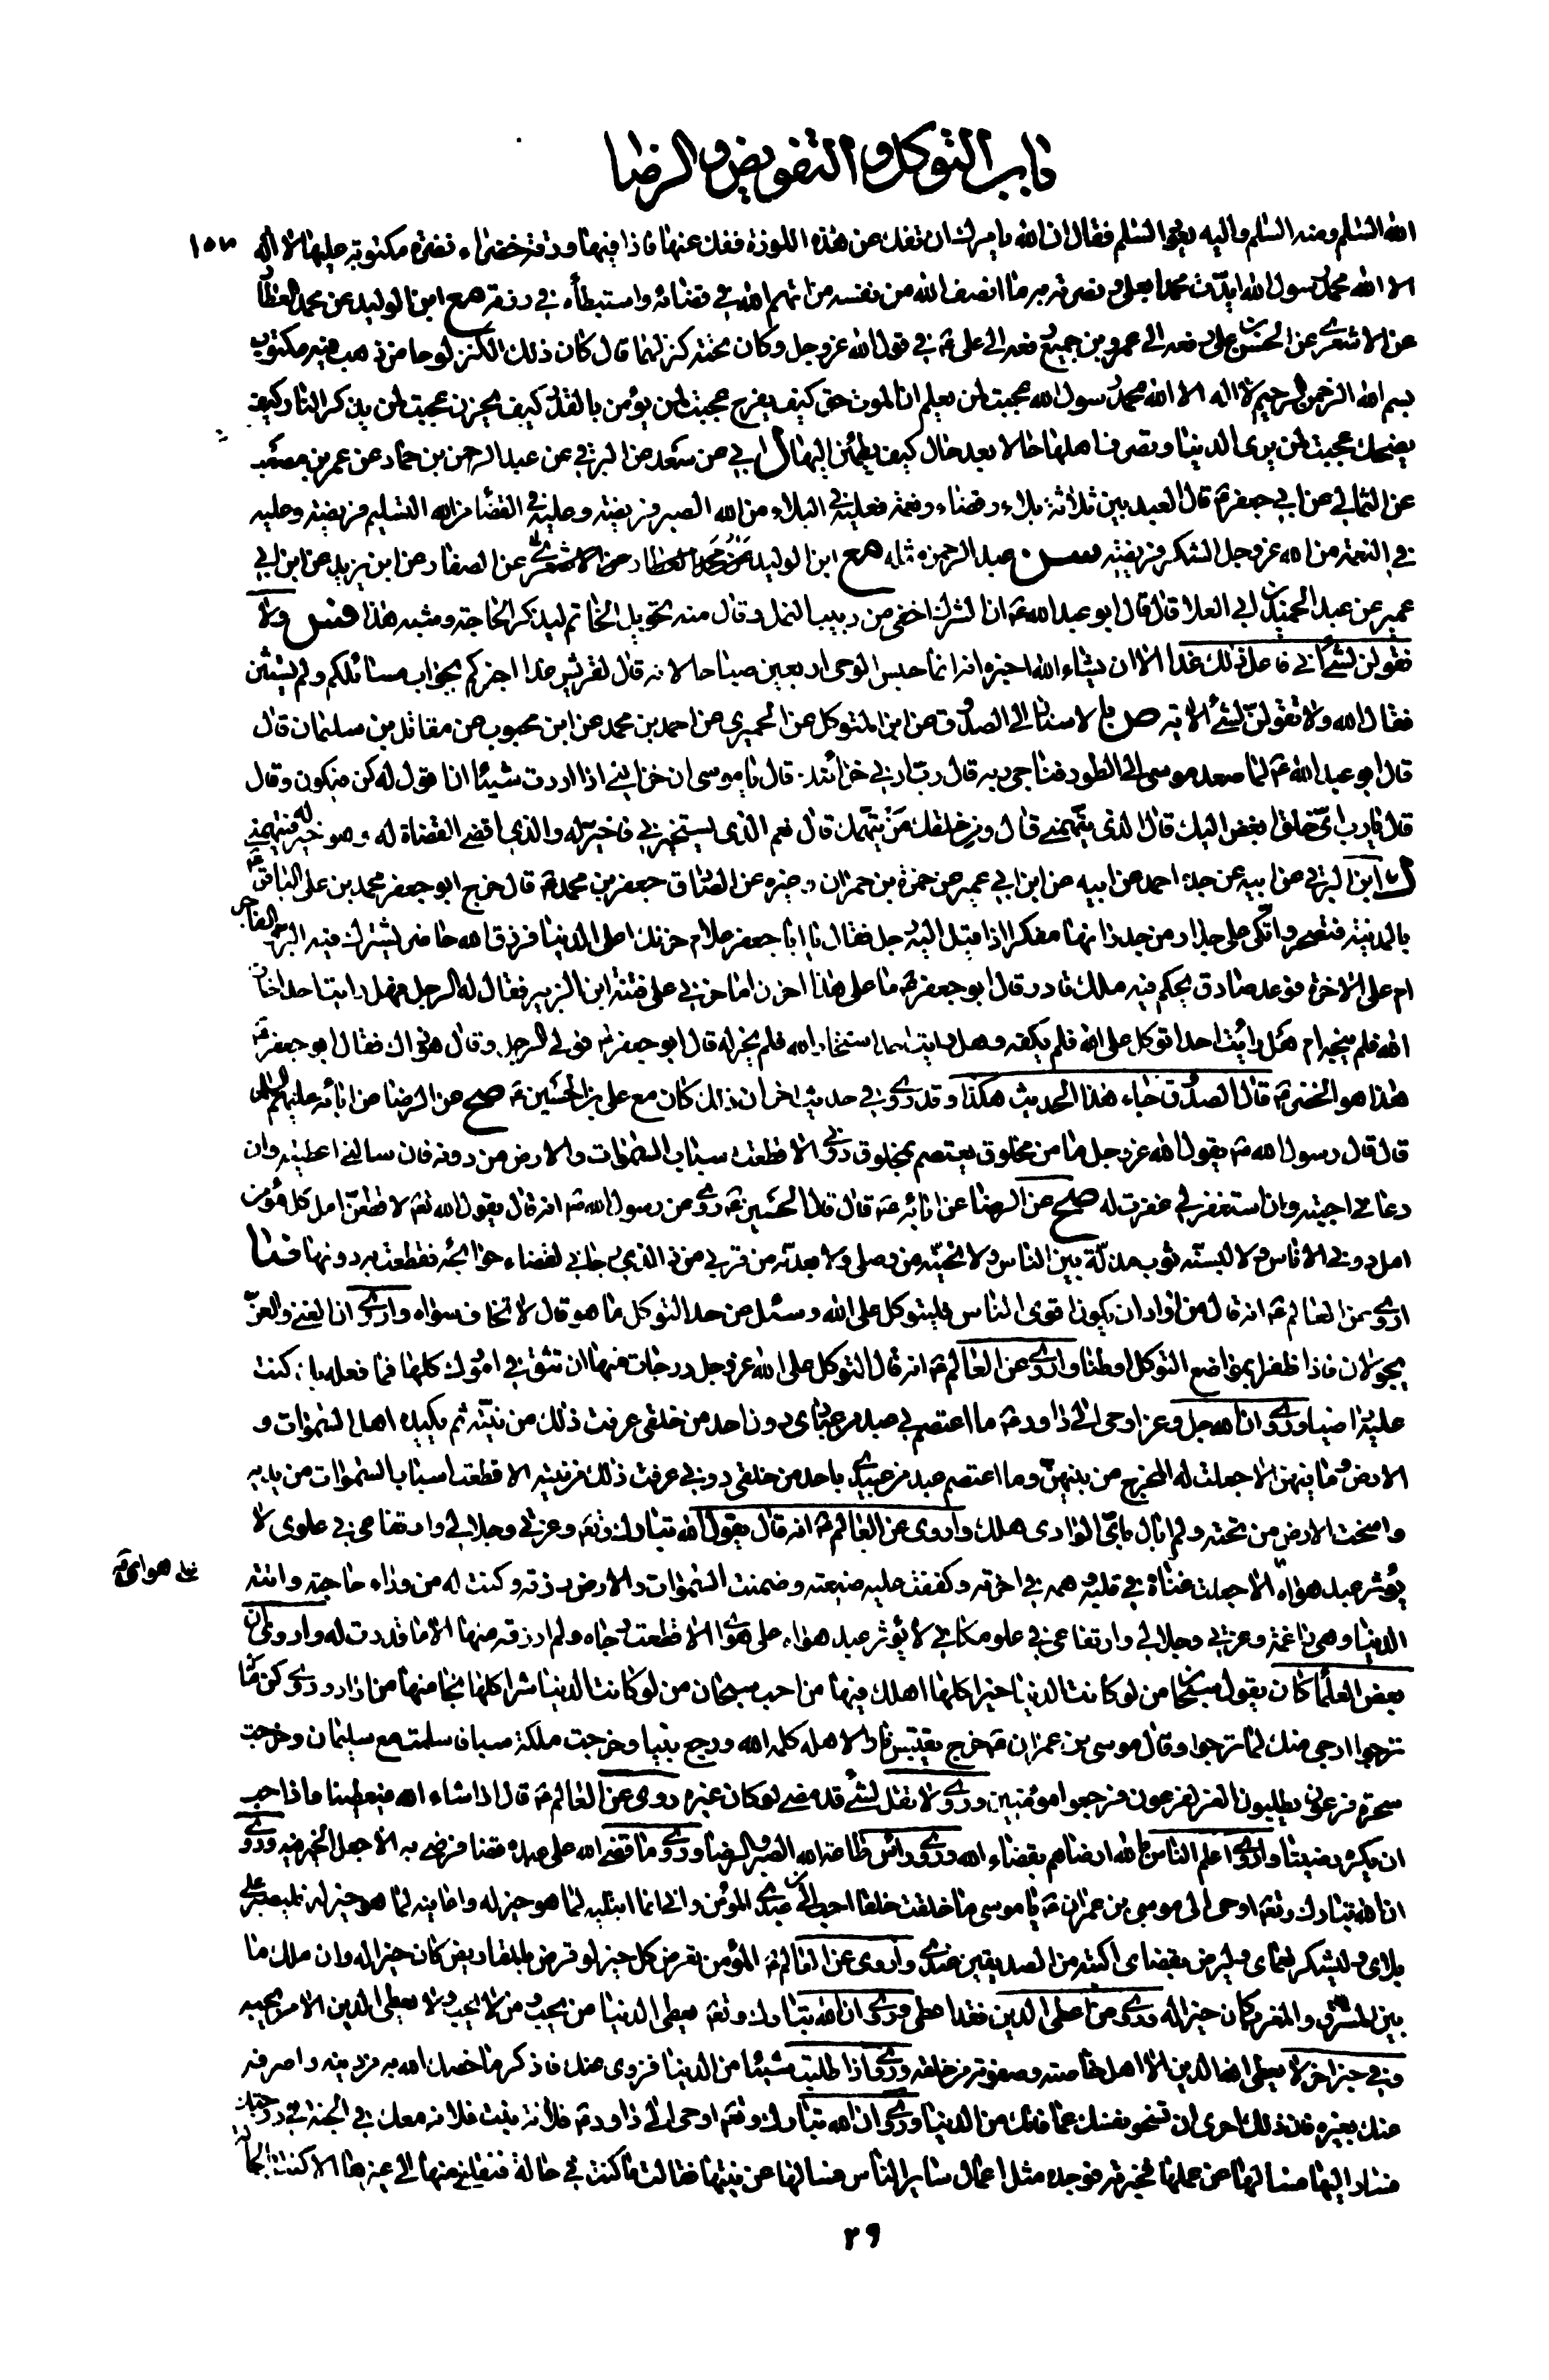 باب التوكل والتفويض والرضا
الله السلم ومنه السلم واليه يعود السلم فقال ان الله يامرك ان تفك عن هذه اللوزة ففك عنها فاذا فيها ورقة خضراء نضرة مكتوبة عليها لا اله
١٥٣
الا الله محمد رسول الله ايدت محمدا بعلى ونصرته به ما انصف الله من نفسه من اتهم الله في قضائه واستبطأه في رزقه مع ابن الوليد عن محمد العطار
عن الاشعري عن الحسن بن علي رفعه الى عمرو بن جميع رفعه الى علي ع في قول الله عز وجل وكان تحته كنز لهما قال كان ذلك الكنز لوحا من ذهب فيه مكتوب
بسم الله الرحمن الرحيم لا اله الا الله محمد رسول الله عجبت لمن يعلم ان الموت حق كيف يفرح عجبت لمن يؤمن بالقدر كيف يحزن عجبت لمن يذكر النار كيف
يضحك عجبت لمن يرى الدنيا وتصرف اهلها حالا بعد حال كيف يطمئن اليها ل ابي عن سعد عن البرقي عن عبد الرحمن بن حماد عن عمر بن مصعب
عن الثمالي عن ابي جعفر ع قال العبد بين ثلاثة بلاء وقضاء ونعمة فعليه في البلاء من الله الصبر فريضة وعليه في القضاء من الله التسليم فريضة وعليه
في النعمة من الله عز وجل الشكر فريضة سن عبد الرحمن مثله مع ابن الوليد عن محمد العطار عن الاشعري عن الصفار عن ابن يزيد عن ابن ابي
عمير عن عبد الحميد بن ابي العلا قال قال ابو عبد الله ع ان الشرك اخفى من دبيب النمل وقال منه تحويل الخاتم ليذكر الحاجة وشبه هذا فس ولا
تقولن لشئ اني فاعل ذلك غدا الا ان يشاء الله اخبره انه انما حبس الوحى اربعين صباحا لانه قال لقريش غدا اخبركم بجواب مسائلكم ولم يستثن
فقال الله ولا تقولن لشئ الاية ص بالاسناد الى الصدوق عن ابن المتوكل عن الحميري عن احمد بن محمد عن ابن محبوب عن مقاتل بن سليمان قال
قال ابو عبد الله ع لما صعد موسى الى الطور فناجى ربه قال رب ارني خزائنك قال يا موسى ان خزائني اذا اردت شيئا ان اقول له كن فيكون وقال
قال يا رب اي خلق ابغض اليك قال الذى يتهمني قال ومن خلقك من يتهمك قال نعم الذى يستخيرني فاخير له والذى اقضى القضاء له وهو خير له فيتهمني
ابن البرقي عن ابيه عن جده احمد عن ابيه عن ابن ابي عمير عن حمزة بن حمران وغيره عن الصادق جعفر بن محمد ع قال خرج ابو جعفر محمد بن علي الباقر ع
بالمدينة فتصحر واتكى على جدار من جدرانها مفكرا اذ اقبل اليه رجل فقال يا ابا جعفر علام حزنك اعلى الدنيا فرزق الله حاضر يشترك فيه البر والفاجر
ام على الاخرة فوعد صادق يحكم فيه ملك قادر قال ابو جعفر ع ما على هذا احزن اما حزني على فتنة ابن الزبير فقال له الرجل فهل رايت احدا خاف
الله فلم ينجه ام هل رايت احدا توكل على الله فلم يكفه وهل رايت احدا استخار الله فلم يخر له قال ابو جعفر ع فولى الرجل وقال هو ذاك فقال ابو جعفر ع
هذا هو الخضر ع قال الصدوق جاء هذا الحديث هكذا وقد روي في حديث اخر ان ذلك كان مع علي بن الحسين ع صح عن الرضا عن ابائه عليهم السلم
قال قال رسول الله ص يقول الله عز وجل ما من مخلوق يعتصم بمخلوق دوني الا قطعت اسباب السموات والارض من دونه فان سالني لم اعطيه وان
دعاني لم اجبه وان استغفرني غفرت له صح عن الرضا عن ابائه ع قال قال الحسين ع روي عن رسول الله ص انه قال يقول الله تع لاقطعن امل كل مؤمن
امل دوني الاناس ولالبسنه ثوب مذلة بين الناس ولانحينه من وصلي ولابعدنه من قربي من ذا الذي رجاني لقضاء حوائجه فقطعت به دونها ضا
اروي عن العالم ع انه قال من اراد ان يكون اقوى الناس فليتوكل على الله وسئل عن حد التوكل ما هو قال لا تخاف سواه واروي ان الغنى والعز
يجولان فاذا ظفرا بمواضع التوكل اوطنا واروي عن العالم ع انه قال التوكل على الله عز وجل درجات منها ان تثق به في امورك كلها فما فعله بك كنت
عليه راضيا وروي ان الله جل وعز اوحى الى داود ع ما اعتصم بي عبد من عبادى دون احد من خلقي عرفت ذلك من نيته ثم يكيده اهل السموات و
الارض وما بينهن الا جعلت له المخرج من بينهن وما اعتصم عبد من عبيدي باحد من خلقي دوني عرفت ذلك من نيته الا قطعت اسباب السموات من يديه
واسخت الارض من تحته ولم ابال باي الوادى هلك واروى عن العالم ع انه قال يقول الله تبارك وتع وعزتي وجلالي وارتفاعى في علوى لا
يؤثر عبد هواه الا جعلت غناه في قلبه وهمه في اخرته وكففت عليه ضيعته وضمنت السموات والارض رزقه وكنت له من وراء حاجته واتته
هواى
الدنيا وهى راغمة وعزتي وجلالي وارتفاعى في علو مكاني لا يؤثر عبد هواه على هواي الا قطعت رجاه ولم ارزقه منها الا ما قدرت له واروي ان
بعض العلماء كان يقول سبحان من لو كانت الدنيا خيرا كلها اهلك فيها من احب سبحان من لو كانت الدنيا شرا كلها نجا منها من اراد وروي كن لما
ترجوا ارجى منك لما ترجوا وقال موسى بن عمران ع خرج يقتبس نارا لاهله كلمه الله ورجع نبيا وخرجت ملكة سبا فاسلمت مع سليمان وخرجت
سحرة فرعون يطلبون العز لفرعون فرجعوا مؤمنين وروي لا تقل لشئ قد مضى لو كان غيره روى عن العالم ع قال اذا شاء الله فيعطينا ما ذا احب
ان يكره رضينا واروي اعلم الناس بالله ارضاهم بقضاء الله وروي راس طاعة الله الصبر والرضا وروي ما قضى الله على عبده قضاء فرضى به الا جعل الخير فيه وروي
ان الله تبارك وتع اوحى الى موسى بن عمران ع يا موسى ما خلقت خلقا احب الى من عبدي المؤمن واني انما ابتليه لما هو خير له واعافيه لما هو خير له فليصبر على
بلاى وليشكر نعماى وليرض بقضاى اكتبه من الصديقين عندي واروى عن العالم ع المؤمن بعرض كل خير لو قرض بالمقاريض كان خيرا له وان ملك ما
بين المشرق والمغرب كان خيرا له وروي من اعطى الدين فقد اعطى وروي ان الله تبارك وتع يعطى الدنيا من يحب ومن لا يحب ولا يعطى الدين الا من يحبه
وفي خبر اخر لا يعطى الله الدين الا اهل خاصته وصفوته من خلقه وروي اذا طلبت شيئا من الدنيا فزوى عنك فاذكر ما خصك الله به من دينه وصرفه
عنك بغيره فان ذلك احرى ان تسخو نفسك عما فاتك من الدنيا وروي ان الله تبارك وتع اوحى الى داود ع فلانة بنت فلانة معك في الجنة في درجتك
فسار اليها فسالها عن عملها فخبرته فوجده مثل اعمال سائر الناس فسالها عن نيتها فقالت ما كنت في حالة فنقلني منها الى غيرها الا كنت بالحالة
٢٩